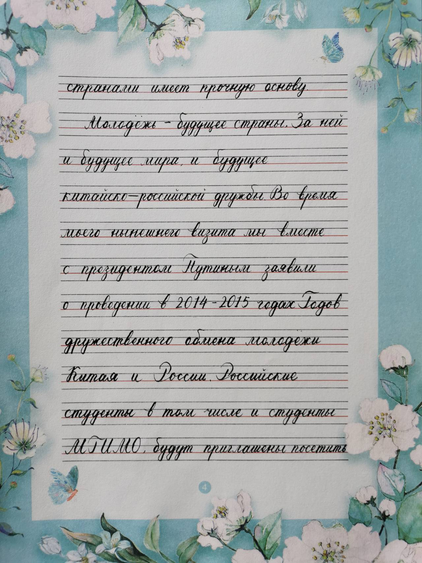 странами имеет прочную основу
Молодёжь - будущее страны. За ней
и будущее мира, и будущее
китайско-российской дружбы. Во время
моего нынешнего визита мы вместе
с президентом Путиным заявили
о проведении в 2014-2015 годах Годов
дружественного обмена молодёжи
Китая и России. Российские
студенты в том числе и студенты
МГИМО, будут приглашены посетить
4